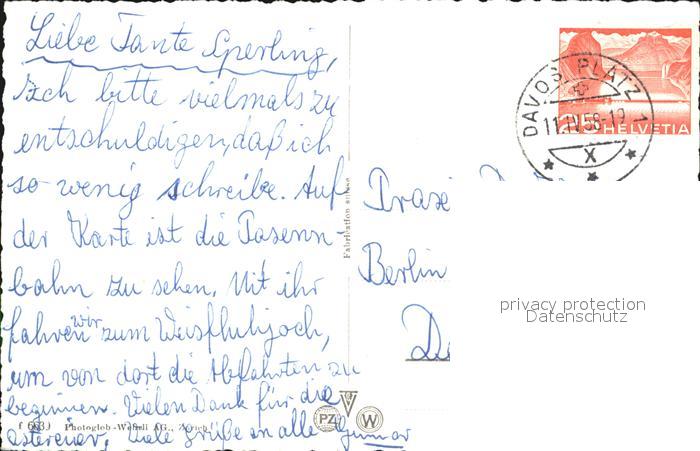 Liebe Tante Sperling,
Ich bitte vielmals zu
entschuldigen, daß ich
so wenig schreibe. Auf
der Karte ist die Pasenn-
bahn zu sehen. Mit ihr
fahren wir zum Weisfluhjoch,
um von dort die Abfahrten zu
beginnen. Vielen Dank für die
Ostereier. Viele Grüße an alle Gunnar
f 6639 Photoglob-Wehrli AG., Zürich
PZ W
Fabrication suisse
DAVOS PLATZ 1
11.IV.58-19
X
15 HELVETIA
Berlin
privacy protection
Datenschutz